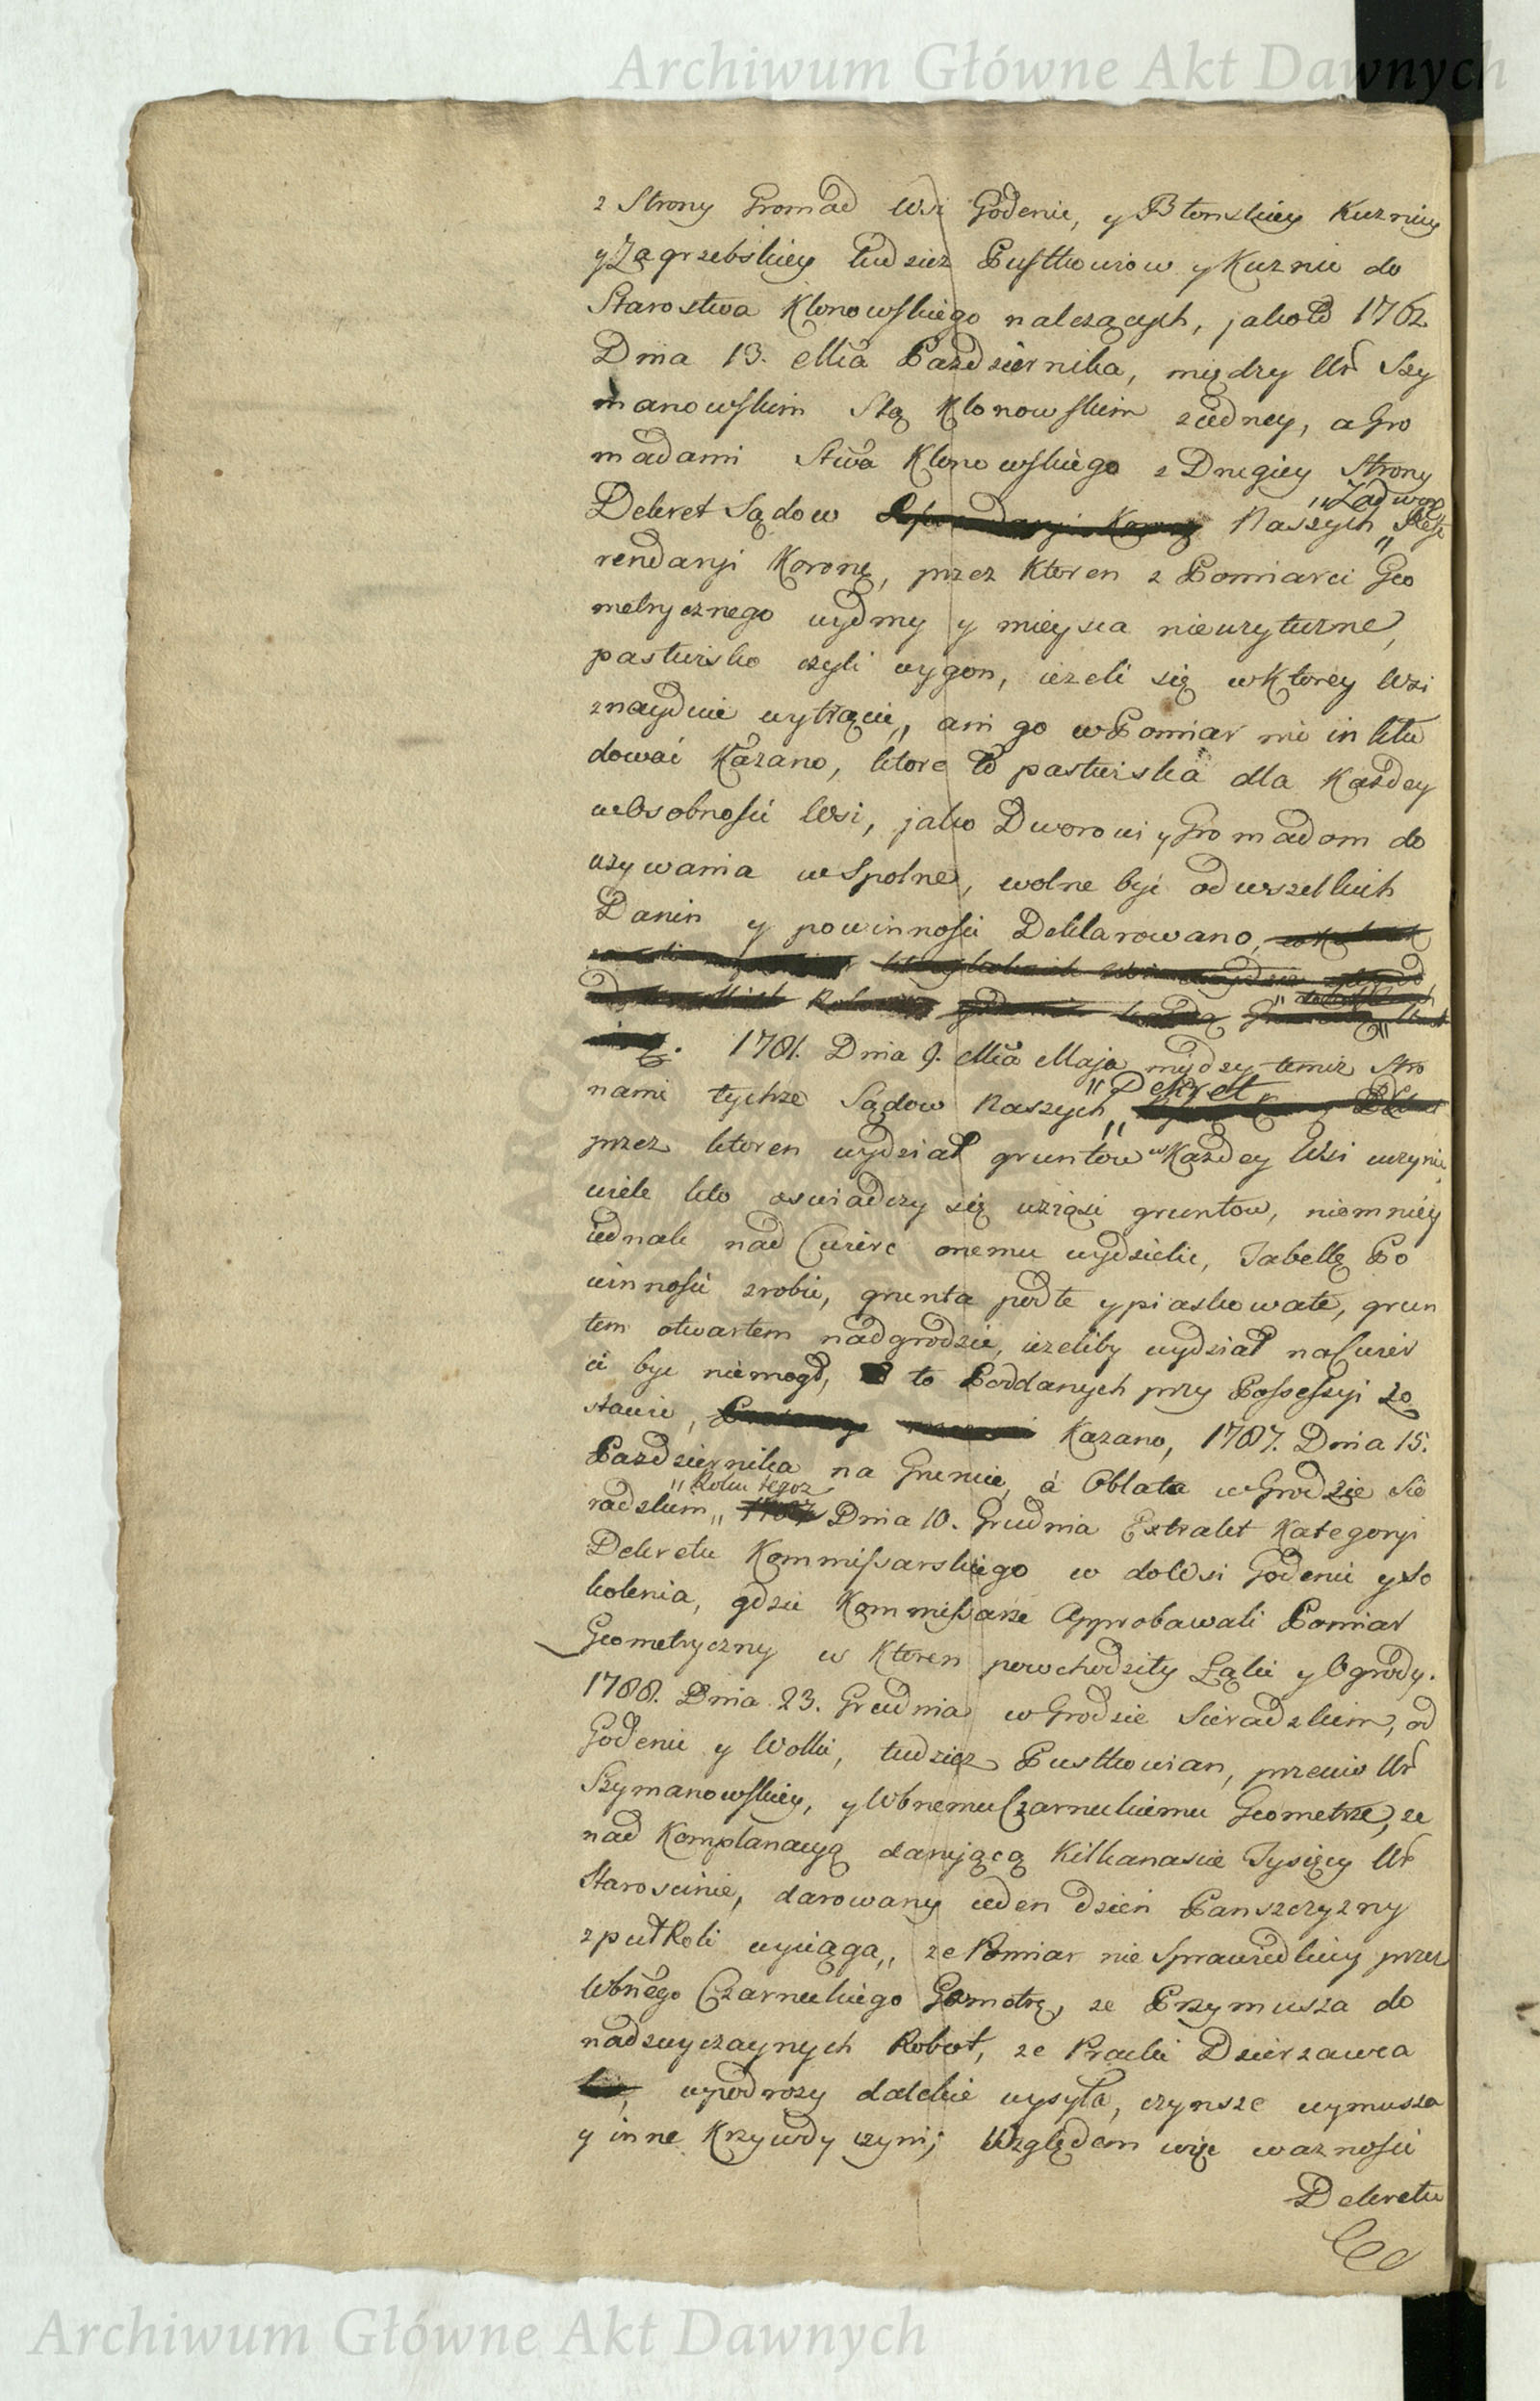 Archiwum Główne Akt Dawnych
z Strony Gromad Wsi Godenie, y Błonskiey Kuznicy
y Zagrzebskiey tudziez Pustkowiow y Kuznic do
Starostwa Klonowskiego nalezących, jako to 1762
Dnia 13. Mca Pazdziernika, między Ur Szy
manowskim Stą Klonowskim z iedney, a Gro
madami Stwa Klonowskiego z Drugiey Strony
Dekret Sądow Naszych „Zadwor „Refe
rendaryi Koroney, przez ktoren z Pomiaru Geo
metrycznego wydmy y mieysca nieuzyteczne,
pastwisko czyli wygon, iezeli się w ktorey Wsi
znayduie wytrącić, ani go w Pomiar nie inklu
dować Kazano, ktore to pastwiska dla Kazdey
w Osobności Wsi, jako Dworowi y Gromadom do
uzywania wspolne, wolne być od wszelkich
Danin y powinności Deklarowano,
1781. Dnia 9. Mca Maja między temiz Stro
nami tychze Sądow Naszych „Dekret„
przez ktoren wydział gruntow w Kazdey Wsi uczynić,
wiele kto oswiadczy się wziąść gruntow, niemniey
iednak nad Cwierć onemu wydzielić, Tabellę Po
winności zrobić, grunta podłe y piaskowate, grun
tem otwartem nadgrodzić, iezeliby wydział na Cwier
ci być niemogł, to Poddanych przy Possessyi zo
stawić, Kazano, 1787. Dnia 15.
Pazdziernika na Gruncie, á Oblata w Grodzie Sie
radzkim „Roku tegoz„ Dnia 10. Grudnia Extrakt Kategoryi
Dekretu Kommissarskiego w do Wsi Godenie y So
kolenia, gdzie Kommissarze Approbowali Pomiar
Geometryczny w Ktoren powchodziły Łąki y Ogrody.
1788. Dnia 23. Grudnia w Grodzie Sieradzkim, od
Godenie y Wolki, tudziez Pustkowian, przeciw Ur
Szymanowskiey, y Wbnemu Czarneckiemu Geometrze, ze
nad Komplanacyą daniącą Kilkanascie Tysięcy Ur
Staroscinie, darowany ieden dzień Panszczyzny
z puł Roli wyciąga, ze Pomiar nie Sprawiedliwy przez
Wbnego Czarneckiego Geometrę, ze Przymusza do
nadzwyczaynych Robot, ze Praeki Dzierzawca
w podrozy dalekie wysyła, czynsze wymusza
y inne Krzywdy czyni; Względem więc wazności
Dekretu
Archiwum Główne Akt Dawnych